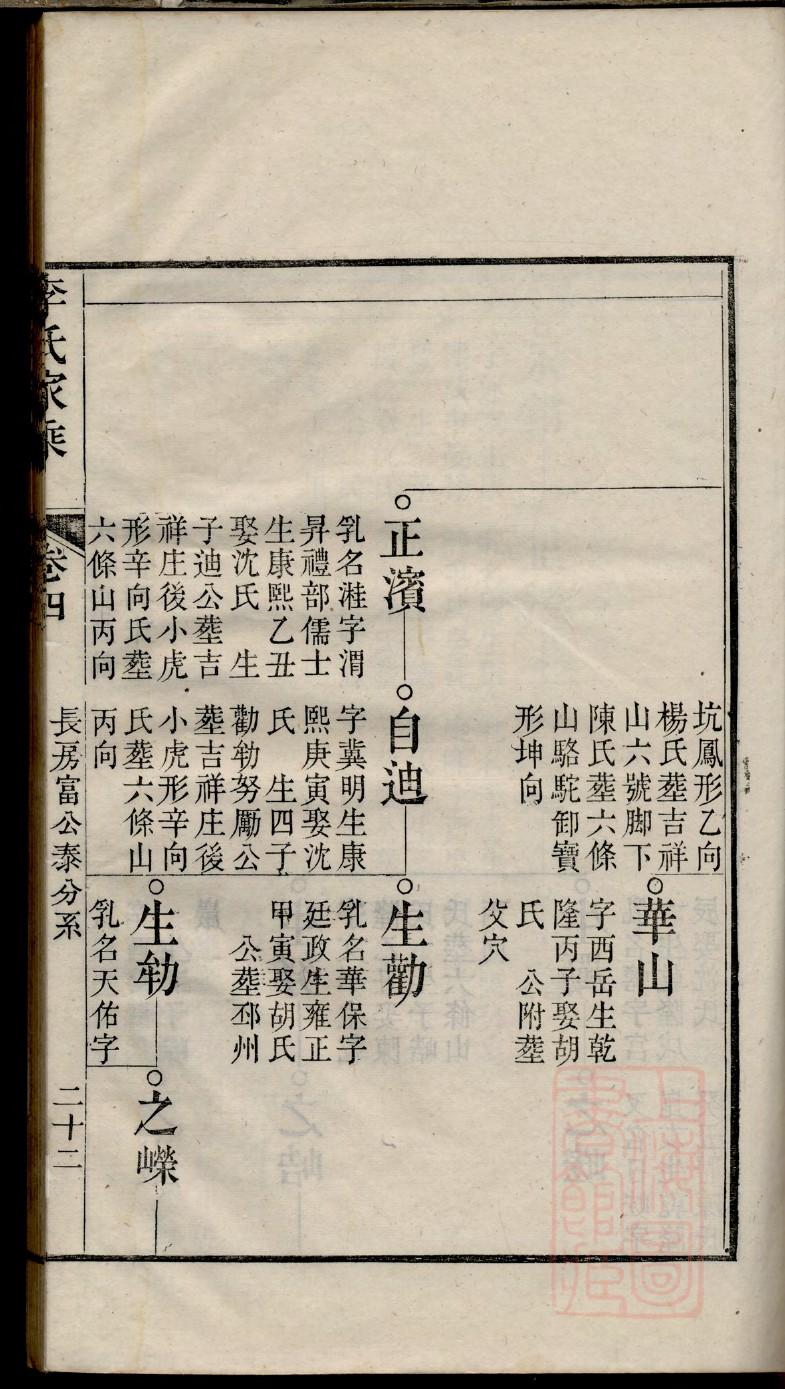 坑鳳形乙向
楊氏塟吉祥
山六號脚下
陳氏塟六條
山駱駝卸寶
形坤向
華山
字西岳生乾
隆丙子娶胡
氏　公附塟
父穴
正濱
乳名漄字渭
昇禮部儒士
生康熙乙丑
娶沈氏　生
子迪公塟吉
祥庄後小虎
形辛向氏塟
六條山丙向
自迪
字冀明生康
熙庚寅娶沈
氏　生四子
勸勄努勵公
塟吉祥庄後
小虎形辛向
氏塟六條山
丙向
生勸
乳名華保字
廷政生雍正
甲寅娶胡氏
公塟邳州
生勄
乳名天佑字
之嶸
李氏家乘
卷四
長房富公泰分系
二十二